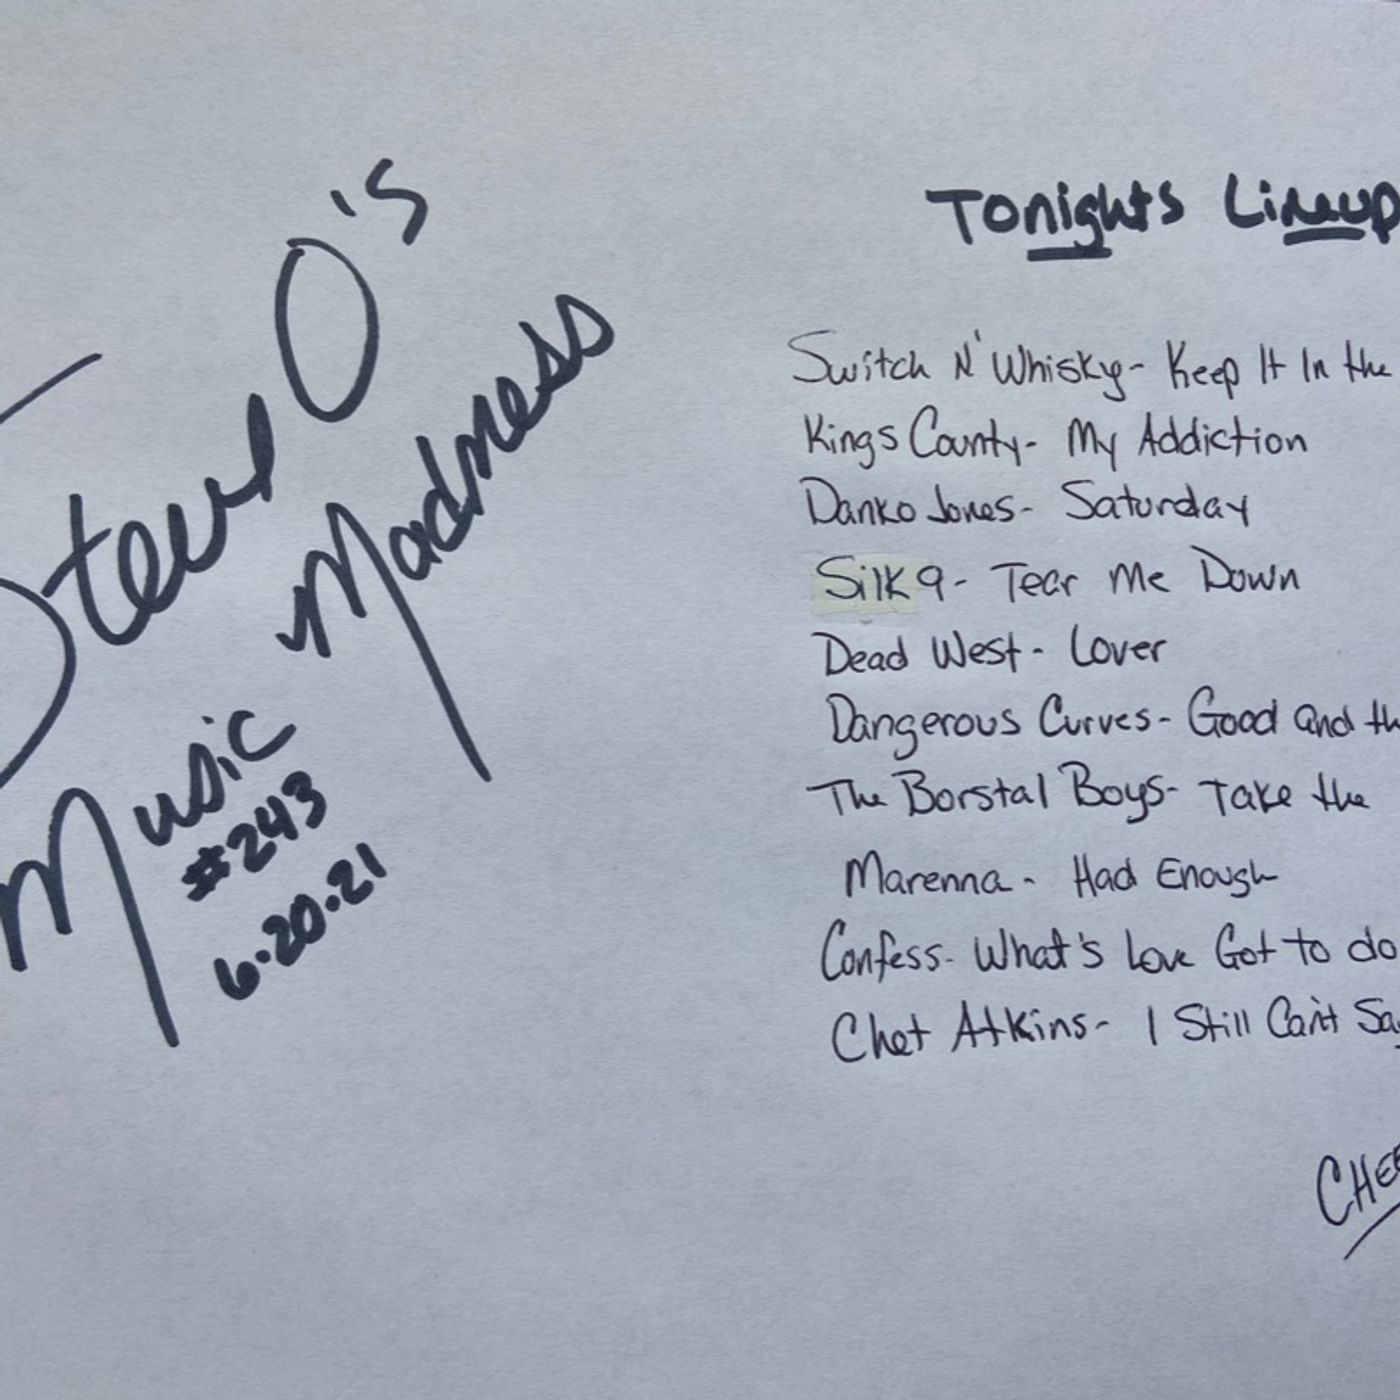 Steve O's
Music Madness
#243
6.20.21
Tonights Lineup
Switch N' Whisky- Keep It In the
Kings County- My Addiction
Danko Jones- Saturday
Silk 9- Tear Me Down
Dead West- Lover
Dangerous Curves- Good and th
The Borstal Boys- Take the
Marenna- Had Enough
Confess- What's Love Got to do
Chet Atkins- I Still Can't Sa
CHEE